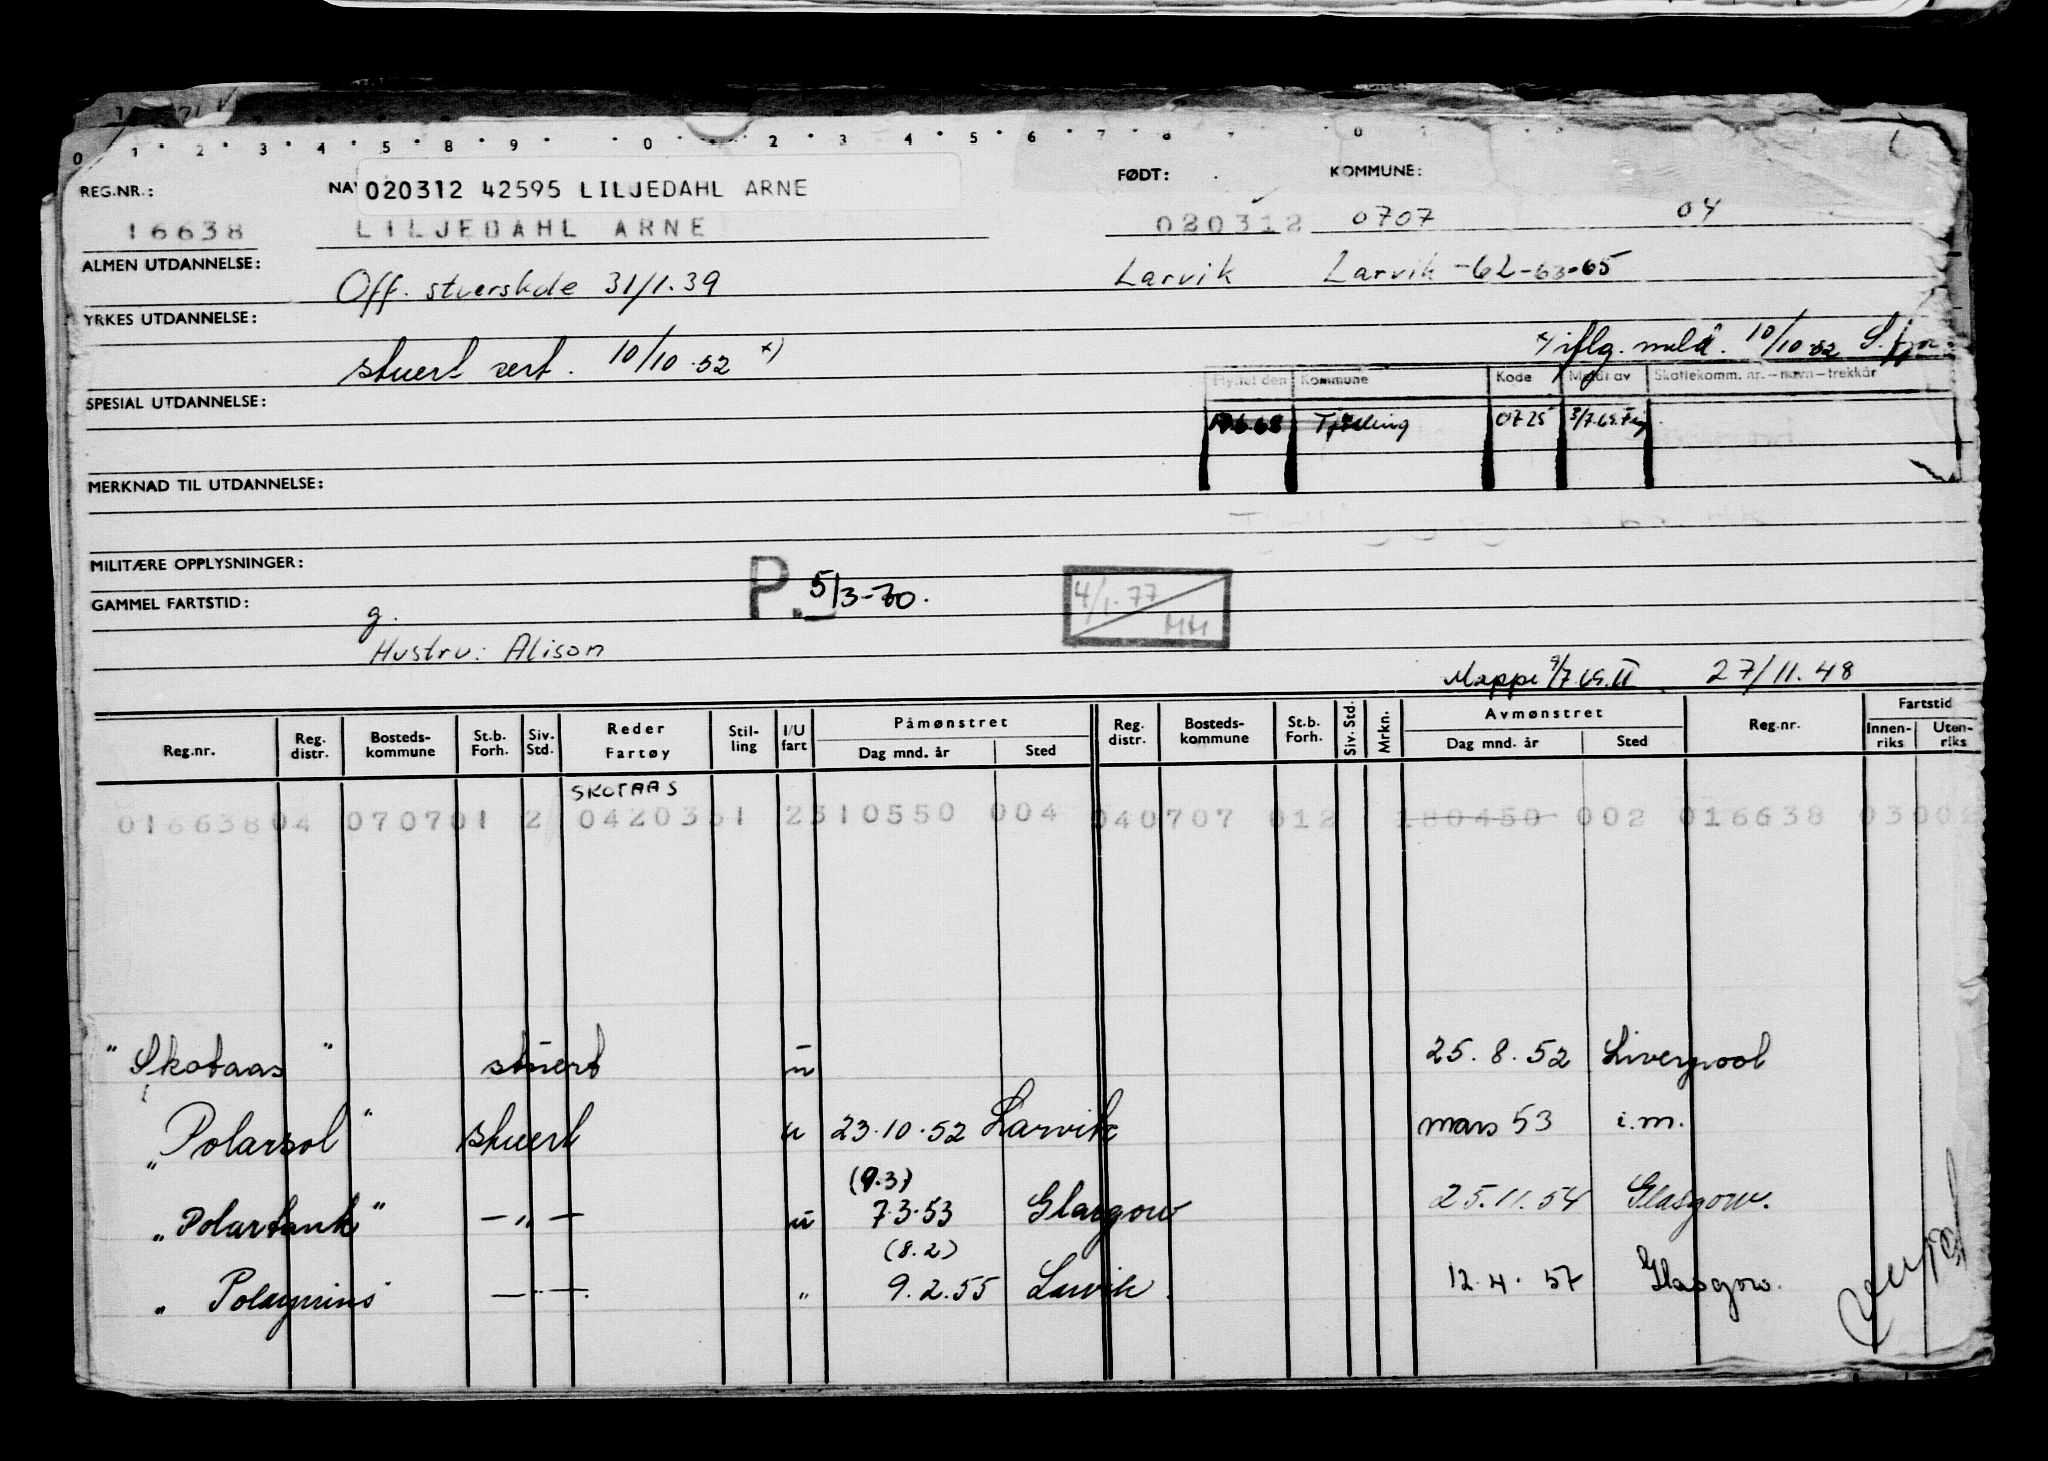 0 1 2 3 4 5 8 9 0 2 3 4 5 6 7 8 0
REG.NR.: NA 020312 42595 LILJEDAHL ARNE FØDT: KOMMUNE:
16638 LILJEDAHL ARNE 020312 0707 04
ALMEN UTDANNELSE: Off. stuerskole 31/1.39 Larvik Larvik -62-63-65
YRKES UTDANNELSE: stuert sert. 10/10.52 x) x) iflg. meld. 10/10.52
Flyttet den Kommune Kode Meldt av Skattekomm. nr.-navn-trekkår
SPESIAL UTDANNELSE: Tjølling 0725
MERKNAD TIL UTDANNELSE:
MILITÆRE OPPLYSNINGER:
P. 5/3-70. 4/1.77 HH
GAMMEL FARTSTID: g.
Hustru: Alison
Mappe 9/7.69.II 27/11.48
Reg.nr. Reg. distr. Bosteds-kommune St.b. Forh. Siv. Std. Reder Fartøy Stil-ling I/U fart Påmønstret Dag mnd. år Sted Reg. distr. Bosteds-kommune St.b. Forh. Siv. Std. Mrkn. Avmønstret Dag mnd. år Sted Reg.nr. Fartstid Innen-riks Uten-riks
SKOTAAS
01663804 070701 2 0420351 2310550 004 040707 012 180450 002 016638
"Skotaas" stuert u 25.8.52 Liverpool
"Polarsol" stuert u 23.10.52 Larvik mars 53 i.m.
(9.3)
"Polartank" -"- u 7.3.53 Glasgow 25.11.54 Glasgow.
(8.2)
"Polarprins" -"- " 9.2.55 Larvik. 12.4.57 Glasgow.